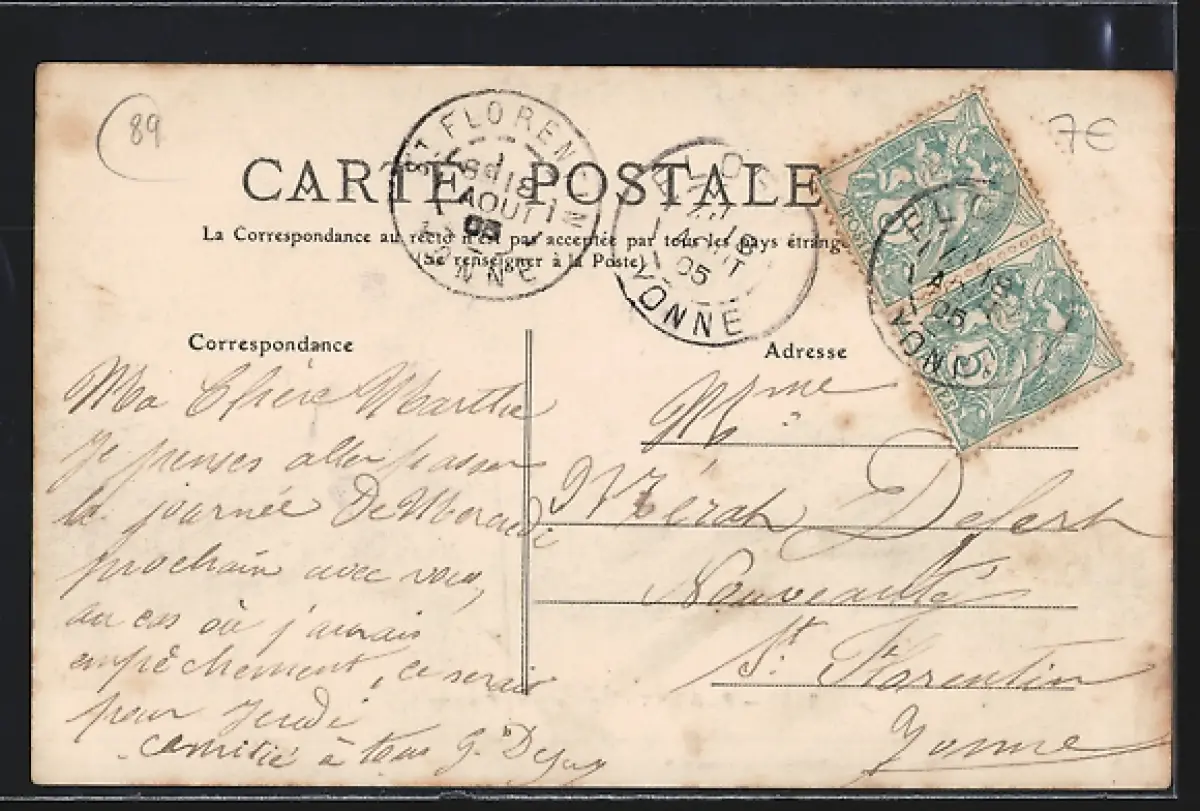 89
7€
CARTE POSTALE
La Correspondance au recto n'est pas acceptée par tous les pays étrang
(Se renseigner à la Poste)
ST FLORENTIN
AOUT
05
YONNE
18
AOUT
05
YONNE
18
05
YONNE
POSTES
5
Correspondance
Adresse
Ma Chère Marthe
Je penses aller passer
la journée De Mercredi
prochain avec vous,
au cas où j'aurais
empêchement, ce serais
pour Jeudi
amitié à tous G.
Mme
Defert
Nouveautés
St. Florentin
Yonne